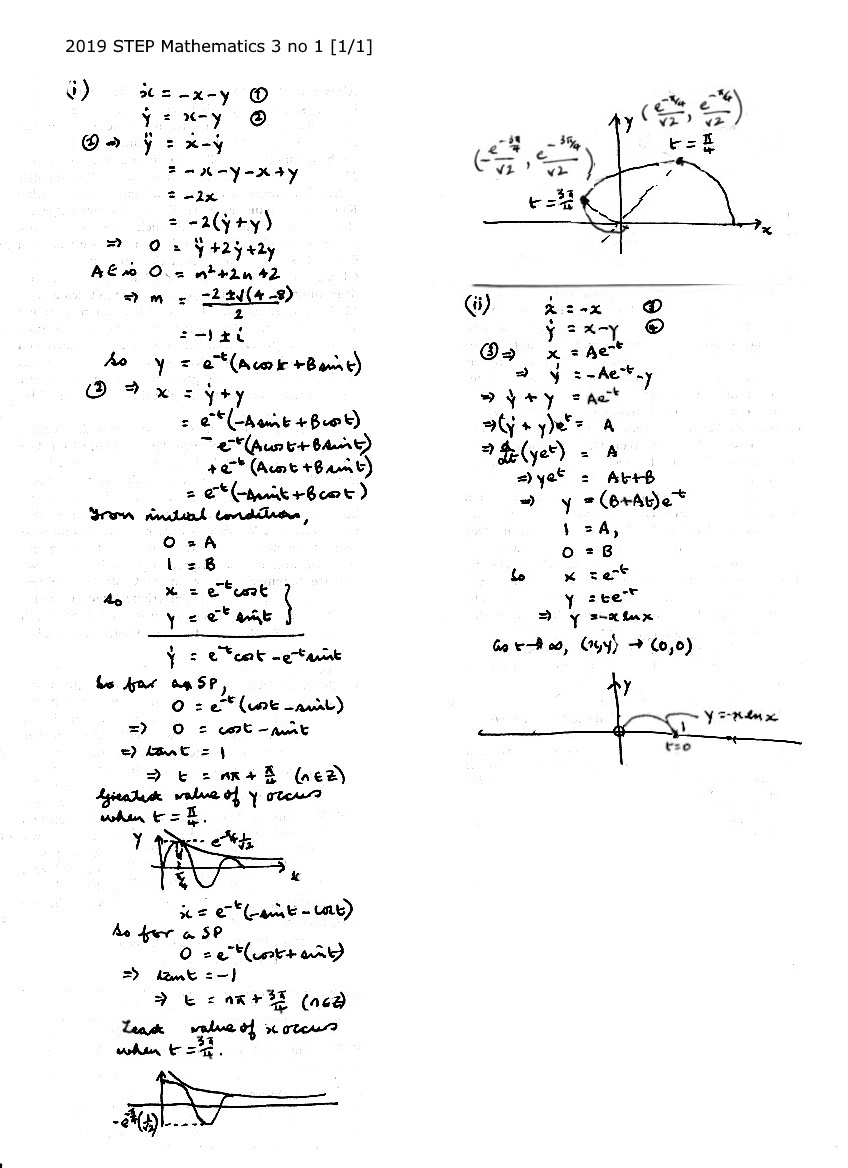 2019 STEP Mathematics 3 no 1 [1/1]
(i) ẋ = -x-y ①
ẏ = x-y ②
② ⇒ ÿ = ẋ-ẏ
= -x-y-x+y
= -2x
= -2(ẏ+y)
⇒ 0 = ÿ+2ẏ+2y
AE is 0 = m²+2m+2
⇒ m = (-2±√(4-8))/2
= -1 ± i
So y = e^-t(A cos t + B sin t)
② ⇒ x = ẏ+y
= e^-t(-A sin t + B cos t)
- e^-t(A cos t + B sin t)
+ e^-t(A cos t + B sin t)
= e^-t(-A sin t + B cos t)
From initial conditions,
0 = A
1 = B
so x = e^-t cos t
y = e^-t sin t }
ẏ = e^-t cos t - e^-t sin t
So for a SP,
0 = e^-t(cos t - sin t)
⇒ 0 = cos t - sin t
⇒ tan t = 1
⇒ t = nπ + π/4 (n∈Z)
Greatest value of y occurs
when t = π/4.
y e^-π/4 1/√2
π/4 t
ẋ = e^-t(-sin t - cos t)
So for a SP
0 = e^-t(cos t + sin t)
⇒ tan t = -1
⇒ t = nπ + 3π/4 (n∈Z)
Least value of x occurs
when t = 3π/4.
-e^-3π/4(1/√2)
y (e^-π/4/√2, e^-π/4/√2)
t = π/4
(-e^-3π/4/√2, e^-3π/4/√2)
t = 3π/4
x
(ii) ẋ = -x ③
ẏ = x-y ④
③ ⇒ x = Ae^-t
⇒ ẏ = -Ae^-t-y
⇒ ẏ + y = Ae^-t
⇒ (ẏ + y)e^t = A
⇒ d/dt(ye^t) = A
⇒ ye^t = At+B
⇒ y = (B+At)e^-t
1 = A,
0 = B
So x = e^-t
y = te^-t
⇒ y = -x ln x
As t → ∞, (x,y) → (0,0)
y
y = -x ln x
1
t=0